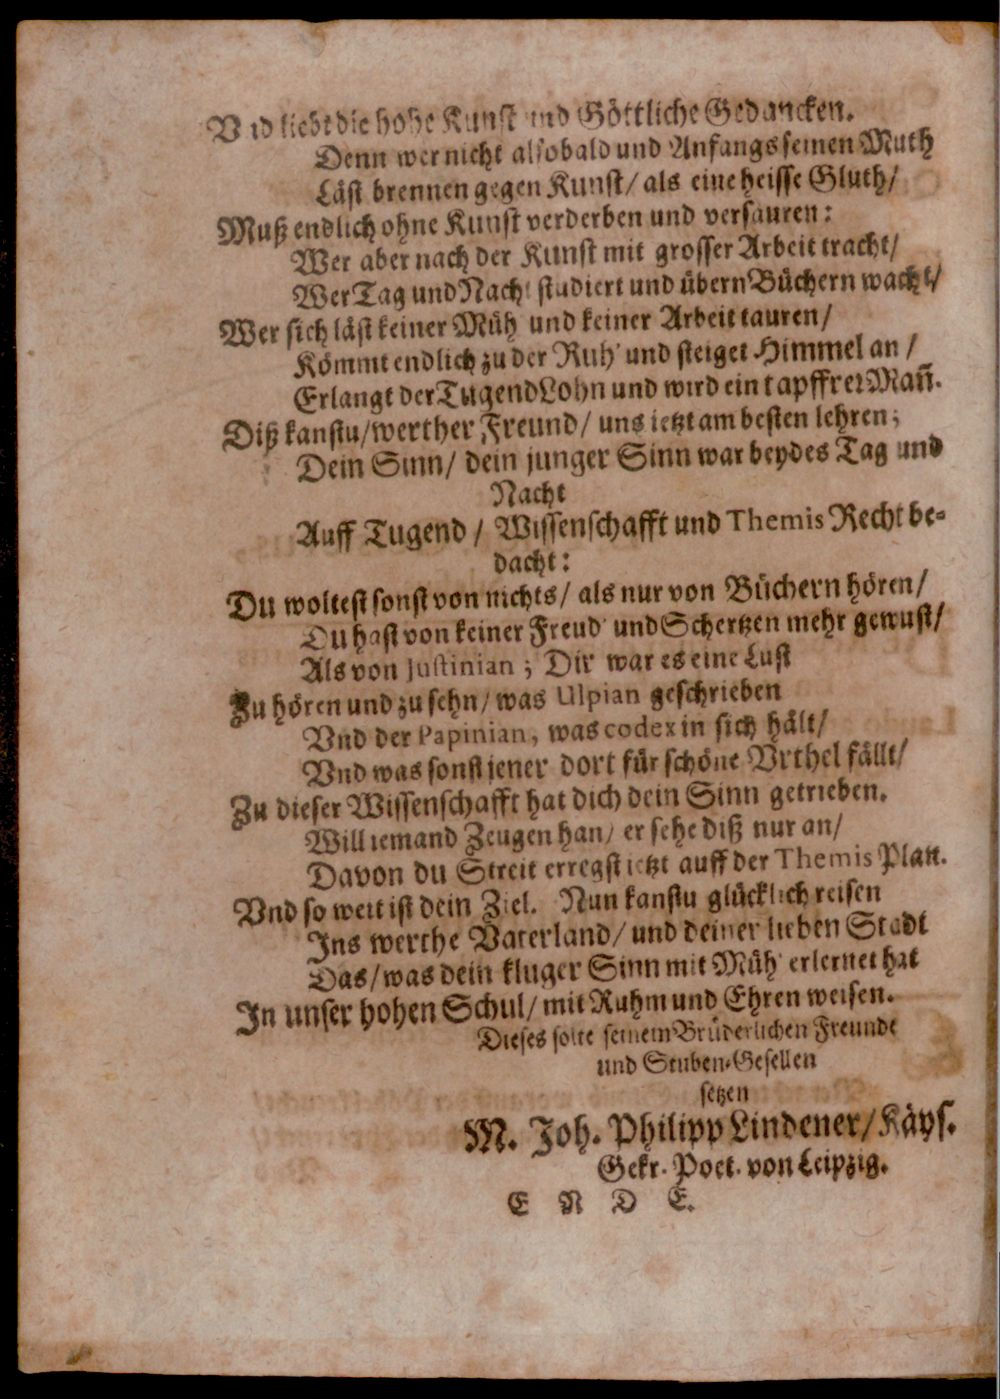 Vnd liebt die hohe Kunst und Göttliche Gedancken.
Denn wer nicht alsobald und Anfangs seinen Muth
Läst brennen gegen Kunst/ als eine heisse Gluth/
Muß endlich ohne Kunst verderben und versauren:
Wer aber nach der Kunst mit grosser Arbeit tracht/
Wer Tag und Nacht studiert und übern Büchern wacht/
Wer sich läst keiner Müh und keiner Arbeit tauren/
Kömmt endlich zu der Ruh' und steiget Himmel an/
Erlangt der Tugend Lohn und wird ein tapffrer Mañ.
Diß kanstu/ werther Freund/ uns ietzt am besten lehren;
Dein Sinn/ dein junger Sinn war beydes Tag und
Nacht
Auff Tugend/ Wissenschafft und Themis Recht be-
dacht:
Du woltest sonst von nichts/ als nur von Büchern hören/
Du hast von keiner Freud' und Schertzen mehr gewust/
Als von Justinian; Dir war es eine Lust
Zu hören und zu sehn/ was Ulpian geschrieben
Vnd der Papinian, was codex in sich hält/
Vnd was sonst jener dort für schöne Vrthel fällt/
Zu dieser Wissenschafft hat dich dein Sinn getrieben.
Will iemand Zeugen han/ er sehe diß nur an/
Davon du Streit erregst ietzt auff der Themis Plan.
Vnd so weit ist dein Ziel. Nun kanstu glücklich reisen
Ins werthe Vaterland/ und deiner lieben Stadt
Das/ was dein kluger Sinn mit Müh' erlernet hat
In unser hohen Schul/ mit Ruhm und Ehren weisen.
Dieses solte seinem Brüderlichen Freunde
und Stuben-Gesellen
setzen
M. Joh. Philipp Lindener/ Käys.
Gekr. Poet. von Leipzig.
E N D E.